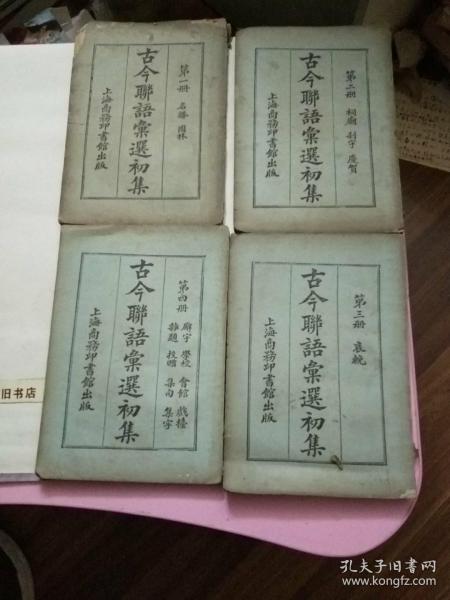 第一册 名勝 園林
古今聯語彙選初集
上海商務印書館出版
第二册 祠廟 刹宇 慶賀
古今聯語彙選初集
上海商務印書館出版
第四册 廨宇 學校 會館 戲檯
雜題 投贈 集句 集字
古今聯語彙選初集
上海商務印書館出版
第三册 哀輓
古今聯語彙選初集
上海商務印書館出版
旧书店
孔夫子旧书网
www.kongfz.com